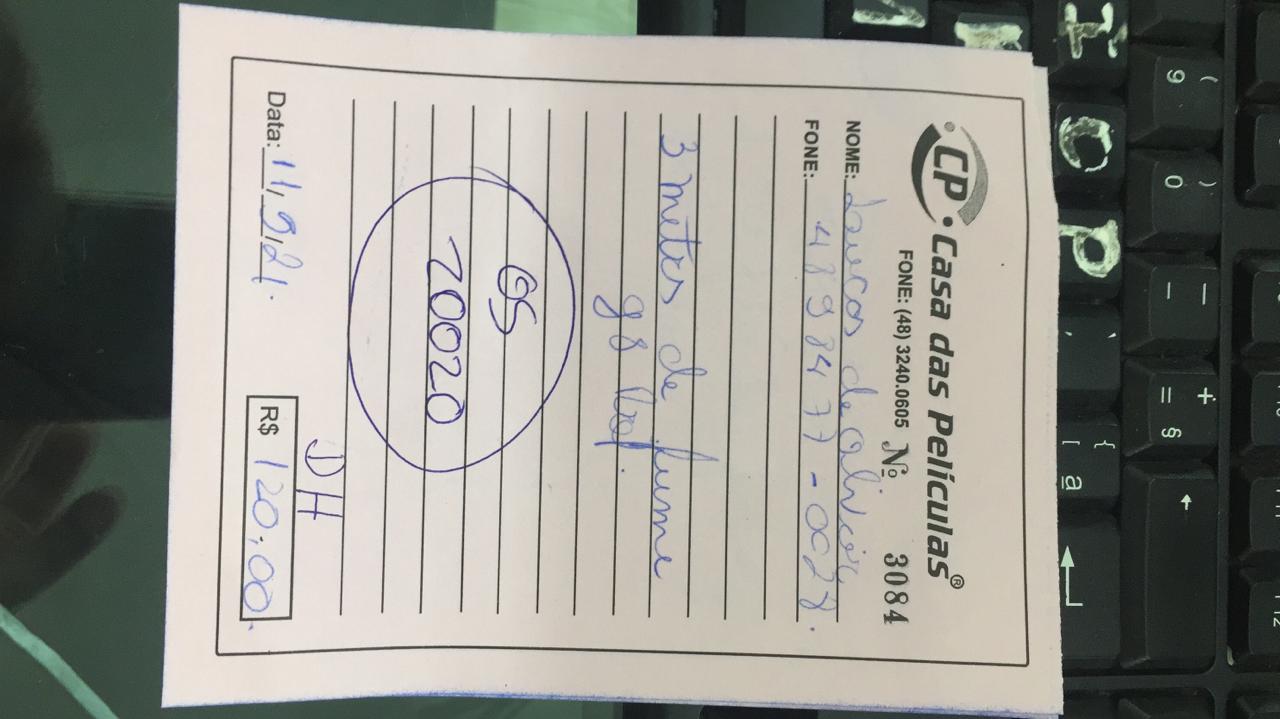 CP Casa das Películas®
FONE: (48) 3240.0605 Nº 3084
NOME: de oliveira
FONE: 4898477-0028.
3 metros de fume
g8
OS
20020
DH
Data: 11,9,21. R$ 120,00.
9 ( 0 ) = + §
I O P
[ { ª